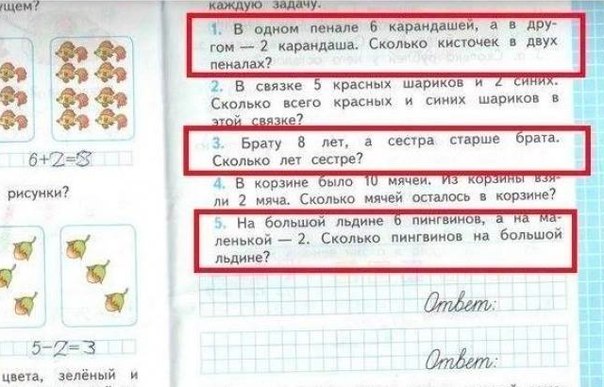 ущем?
6+2=8
рисунки?
5-2=3
цвета, зелёный и
каждую задачу.
1. В одном пенале 6 карандашей, а в дру-
гом — 2 карандаша. Сколько кисточек в двух
пеналах?
2. В связке 5 красных шариков и 2 синих.
Сколько всего красных и синих шариков в
этой связке?
3. Брату 8 лет, а сестра старше брата.
Сколько лет сестре?
4. В корзине было 10 мячей. Из корзины взя-
ли 2 мяча. Сколько мячей осталось в корзине?
5. На большой льдине 6 пингвинов, а на ма-
ленькой — 2. Сколько пингвинов на большой
льдине?
Ответ:
Ответ: